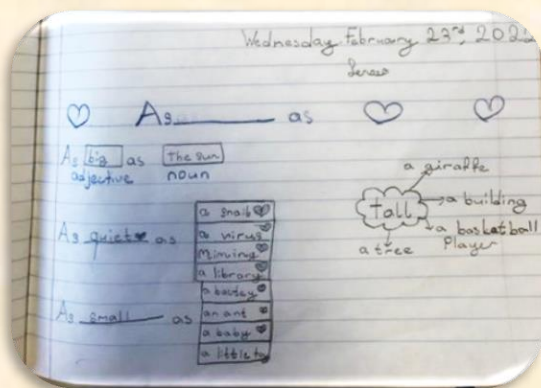 Wednesday February 23rd, 202
As ______ as
As big as The sun
adjective noun
As quiet as
a snail
a virus
Miming
a library
As small as
an ant
a baby
a little
Tall
a giraffe
a building
a basketball
Player
a tree